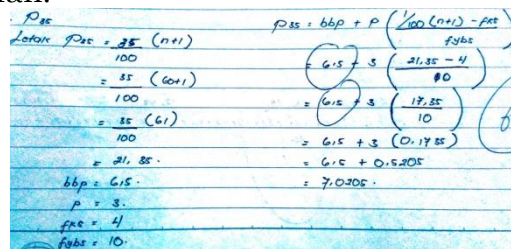 P35
Letak P35 = 35/100 (n+1)
= 35/100 (60+1)
= 35/100 (61)
= 21,35.
bbp = 6,5.
P = 3.
fks = 4
fybs = 10.
P35 = bbp + P ( 1/100 (n+1) - fks / fybs )
= 6,5 + 3 ( 21,35 - 4 / 10 )
= 6,5 + 3 ( 17,35 / 10 )
= 6,5 + 3 (0,1735)
= 6,5 + 0,5205
= 7,0205.